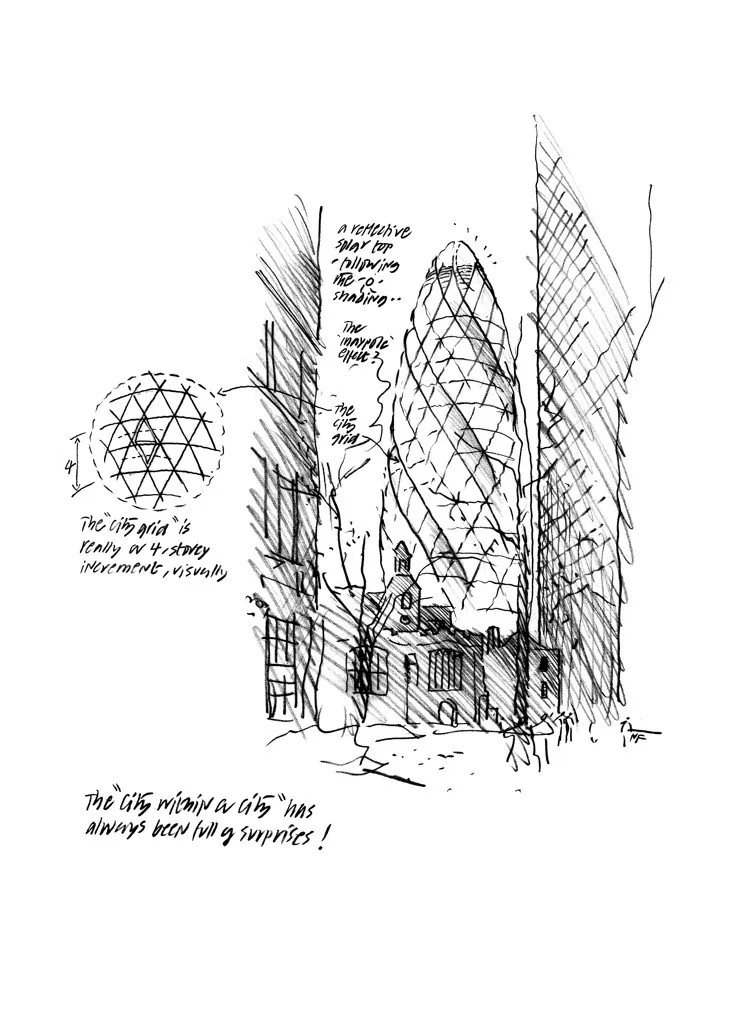 a reflective
solar top
- following
the
shading..
The
'maypole'
effect?
The
city
grid
4
The "city grid" is
really a 4, storey
increment, visually
NF
The "city within a city" has
always been full of surprises!